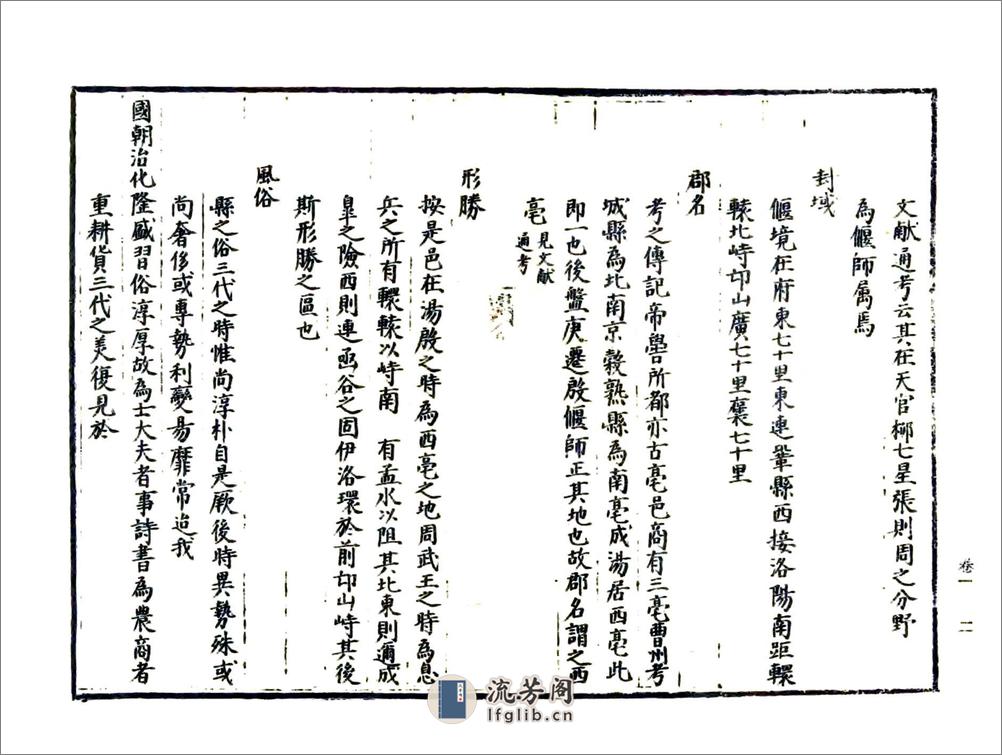 文獻通考云其在天官柳七星張則周之分野
為偃師屬焉
封域
偃境在府東七十里東連鞏縣西接洛陽南距轘
轅北峙邙山廣七十里袤七十里
郡名
考之傳記帝嚳所都亦古亳邑商有三亳曹州考
城縣為北南京穀熟縣為南亳成湯居西亳此
即一也後盤庚遷殷偃師正其地也故郡名謂之西
亳見文獻通考
形勝
按是邑在湯殷之時為西亳之地周武王之時為息
兵之所有轘轅以峙南 有孟水以阻其北東則邇成
皐之險西則連函谷之固伊洛環於前邙山峙其後
斯形勝之區也
風俗
縣之俗三代之時惟尚淳朴自是厥後時異勢殊或
尚奢侈或專勢利變易靡常迨我
國朝治化隆盛習俗淳厚故為士大夫者事詩書為農商者
重耕貨三代之美復見於
卷一 二
流芳閣
lfglib.cn